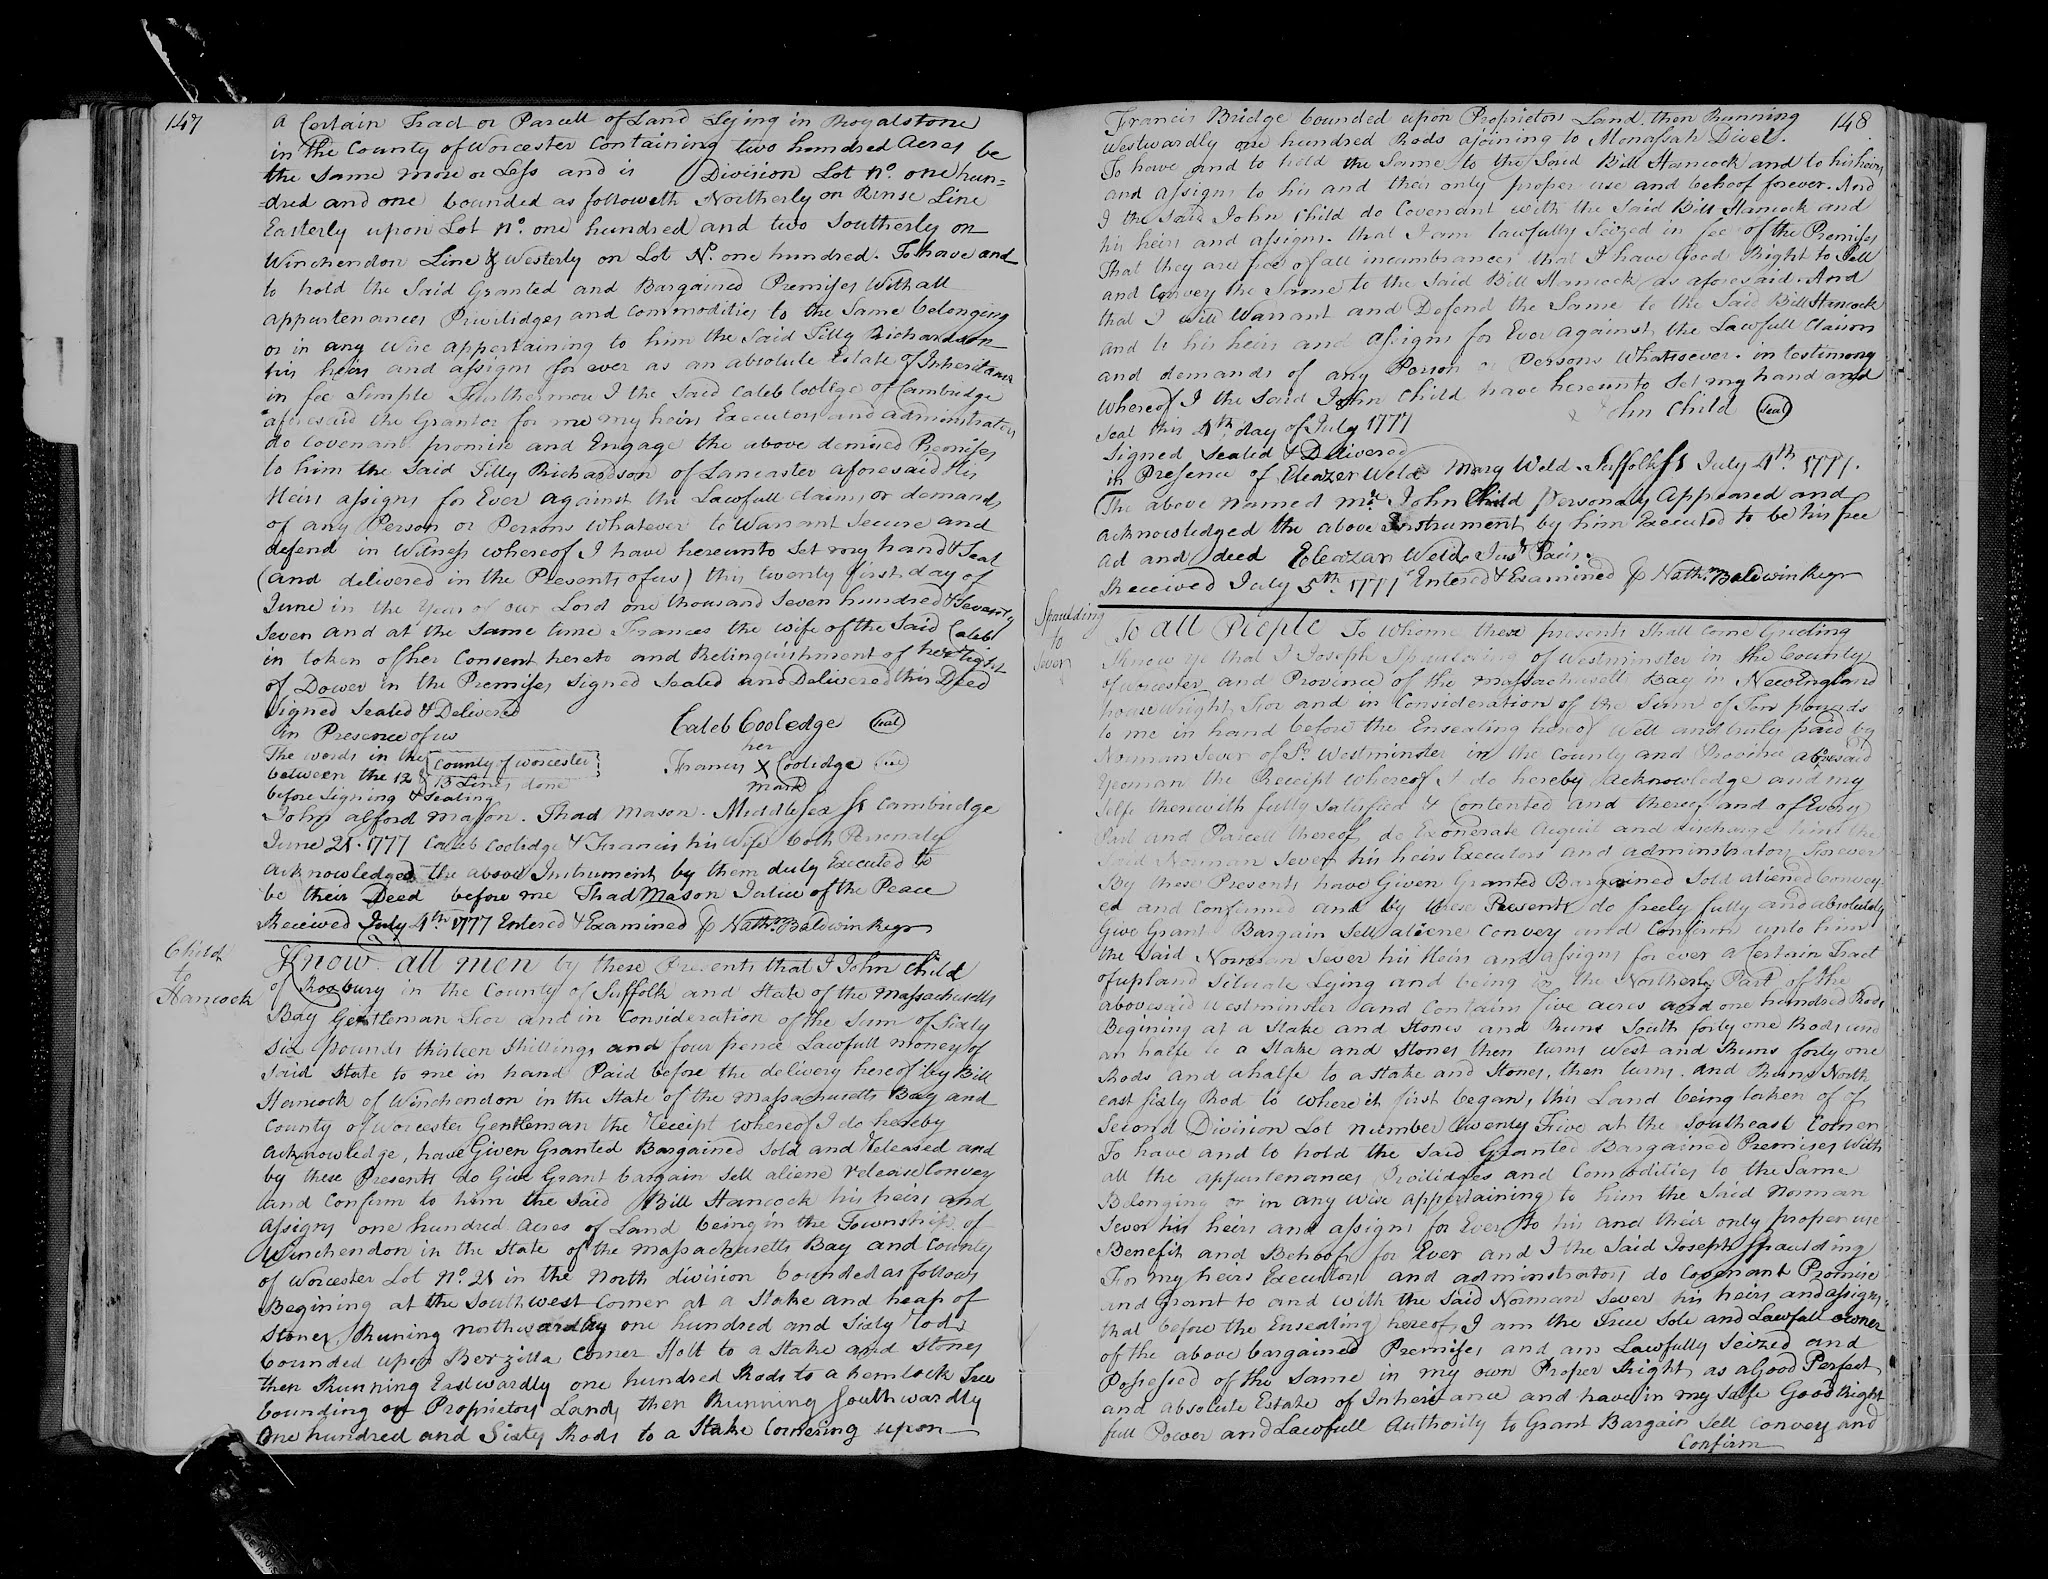 147
a Certain Tract or Parcell of Land Lying in Royalstone
in the County of Worcester Containing two hundred Acres be
the Same more or Less and is Division Lot No. one hun=
=dred and one bounded as followeth Northerly on Rinse Line
Easterly upon Lot No. one hundred and two Southerly on
Winchendon Line & Westerly on Lot No. one hundred. To have and
to hold the Said Granted and Bargained Premises With all
appurtenances Priviledges and Commodities to the Same belonging
or in any Wise appertaining to him the Said Tilly Richardson
his heirs and assigns for ever as an absolute Estate of Inheritance
in fee Simple Furthermore I the Said Caleb Coolege of Cambridge
aforesaid the Grantor for me my heirs Executors and administrators
do Covenant promise and Engage the above demised Premises
to him the Said Tilly Richardson of Lancaster aforesaid His
Heirs assigns for Ever against the Lawfull claims or demands
of any Person or Persons Whatever to Warrant Secure and
defend in Witness whereof I have hereunto Set my hand & Seal
(and delivered in the Presents of us) this twenty first day of
June in the Year of our Lord one thousand Seven hundred & Seventy
Seven and at the Same time Frances the wife of the Said Caleb
in token of her Consent hereto and Relinquishment of her right
of Dower in the Premises Signed Sealed and Delivered this Deed
Signed Sealed & Delivered
in Presence of us Caleb Cooledge Seal
The words in the County of Worcester her
between the 12 & 13 Lines done Francis X Coolidge Seal
before Signing & Sealing mark
John alford Mason. Thad Mason. Middlesex Ss Cambridge
June 21. 1777 Caleb Coolidge & Francis his Wife both Personaly
acknowledged the above Instrument by them duly Executed to
be their Deed before me Thad Mason Justice of the Peace
Received July 4th 1777 Entered & Examined p Nathn Baldwin Regr
Child
to
Hancock
Know all men by these Presents that I John Child
of Roxbury in the County of Suffolk and State of the Massachusetts
Bay Gentleman For and in Consideration of the Sum of Sixty
Six pounds thirteen Shillings and four pence Lawfull money of
Said State to me in hand Paid before the delivery hereof by Bill
Hancock of Winchendon in the State of the Massachusetts Bay and
County of Worcester Gentleman the Receipt whereof I do hereby
acknowledge, have Given Granted Bargained Sold and Released and
by these Presents do Give Grant bargain Sell aliene release Convey
and Confirm to him the Said Bill Hancock his heirs and
assigns one hundred acres of Land being in the Township of
Winchendon in the State of the Massachusetts Bay and County
of Worcester Lot No. 21 in the North division bounded as follows
Begining at the Southwest Corner at a Stake and heap of
Stones Runing northwardly one hundred and Sixty rods
bounded upon Berzilla Corner Holt to a Stake and Stones
then Running Eastwardly one hundred Rods to a hemlock Tree
bounding on Proprietors Land, then Running Southwardly
One hundred and Sixty Rods to a Stake Cornering upon
148
Francis Bridge bounded upon Proprietors Land then Running
Westwardly one hundred Rods ajoining to Monassah Divel.
To have and to hold the Same to the Said Bill Hancock and to his heirs
and assigns to his and their only proper use and behoof forever. And
I the Said John Child do Covenant with the Said Bill Hancock and
his heirs and assigns. that I am lawfully Seized in fee of the Premises
That they are free of all incumbrances that I have Good Right to Sell
and Convey the Same to the Said Bill Hancock as aforesaid. And
that I will Warrant and Defend the Same to the Said Bill Hancock
and to his heirs and assigns for Ever against the Lawfull Claims
and demands of any Person or Persons Whatsoever. in testimony
Whereof I the Said John Child have hereunto Set my hand and
Seal this 4th day of July 1777 John Child Seal
Signed Sealed & Delivered
in Presence of Eleazer Weld Mary Weld. Suffolk Ss July 4th. 1777.
The above named Mr. John Child Personaly Appeared and
acknowledged the above Instrument by him Executed to be his free
act and deed Eleazar Weld Just Pacis.
Received July 5th. 1777 Entered & Examined p Nathn Baldwin Regr
Spaulding
to
Sever
To all Pieple To Whome these presents Shall Come Greeting
Know ye that I Joseph Spaulding of Westminster in the County
of Worcester and Province of the Massachusetts Bay in New England
house Wright, For and in Consideration of the Sum of Ten pounds
to me in hand before the Ensealing hereof Well and truly paid by
Norman Sever of Sd. Westminster in the County and Province aforesaid
Yeoman the Receipt Whereof I do hereby Acknowledge and my
Selfe therewith fully Satisfied & Contented and thereof and of Every
Part and Parcell thereof, do Exonerate Acquit and discharge him the
Said Norman Sever his heirs Executors and adminstrators Forever
By these Presents have Given Granted Bargained Sold aliened Convey-
ed and Confirmed and by these Presents do freely fully and absolutely
Give Grant Bargain Sell aliene Convey and Confirm unto him
the Said Norman Sever his Heirs and assigns for ever a Certain Tract
of upland Situate Lying and being in the Northerly Part of the
abovesaid Westminster and Contains five acres and one hundred Rods
Begining at a Stake and Stones and Runs South forty one Rods and
an halfe to a Stake and Stones then turns West and Runs forty one
Rods and a halfe to a Stake and Stones, then turns and Runs North
east Sixty Rod to where it first began, this Land being taken of of
Second Division Lot number Twenty Five at the Southeast Corner
To have and to hold the Said Granted Bargained Premises With
all the appurtenances Privilidges and Comodities to the Same
Belonging or in any wise appertaining to him the Said Norman
Sever his heirs and assigns for Ever to his and their only proper use
Benefit and Behoof for Ever and I the Said Joseph Spaulding
For my heirs Executors and adminstrators do Covenant Promise
and Grant to and with the Said Norman Sever his heirs and assigns,
that before the Ensealing hereof, I am the True Sole and Lawfull owner
of the above bargained Premises and am Lawfully Seized and
Possessed of the Same in my own Proper Right as a Good Perfect
and absolute Estate of Inheritance and have in my Selfe Good Right
full Power and Lawfull Authority to Grant Bargain Sell Convey and
Confirm